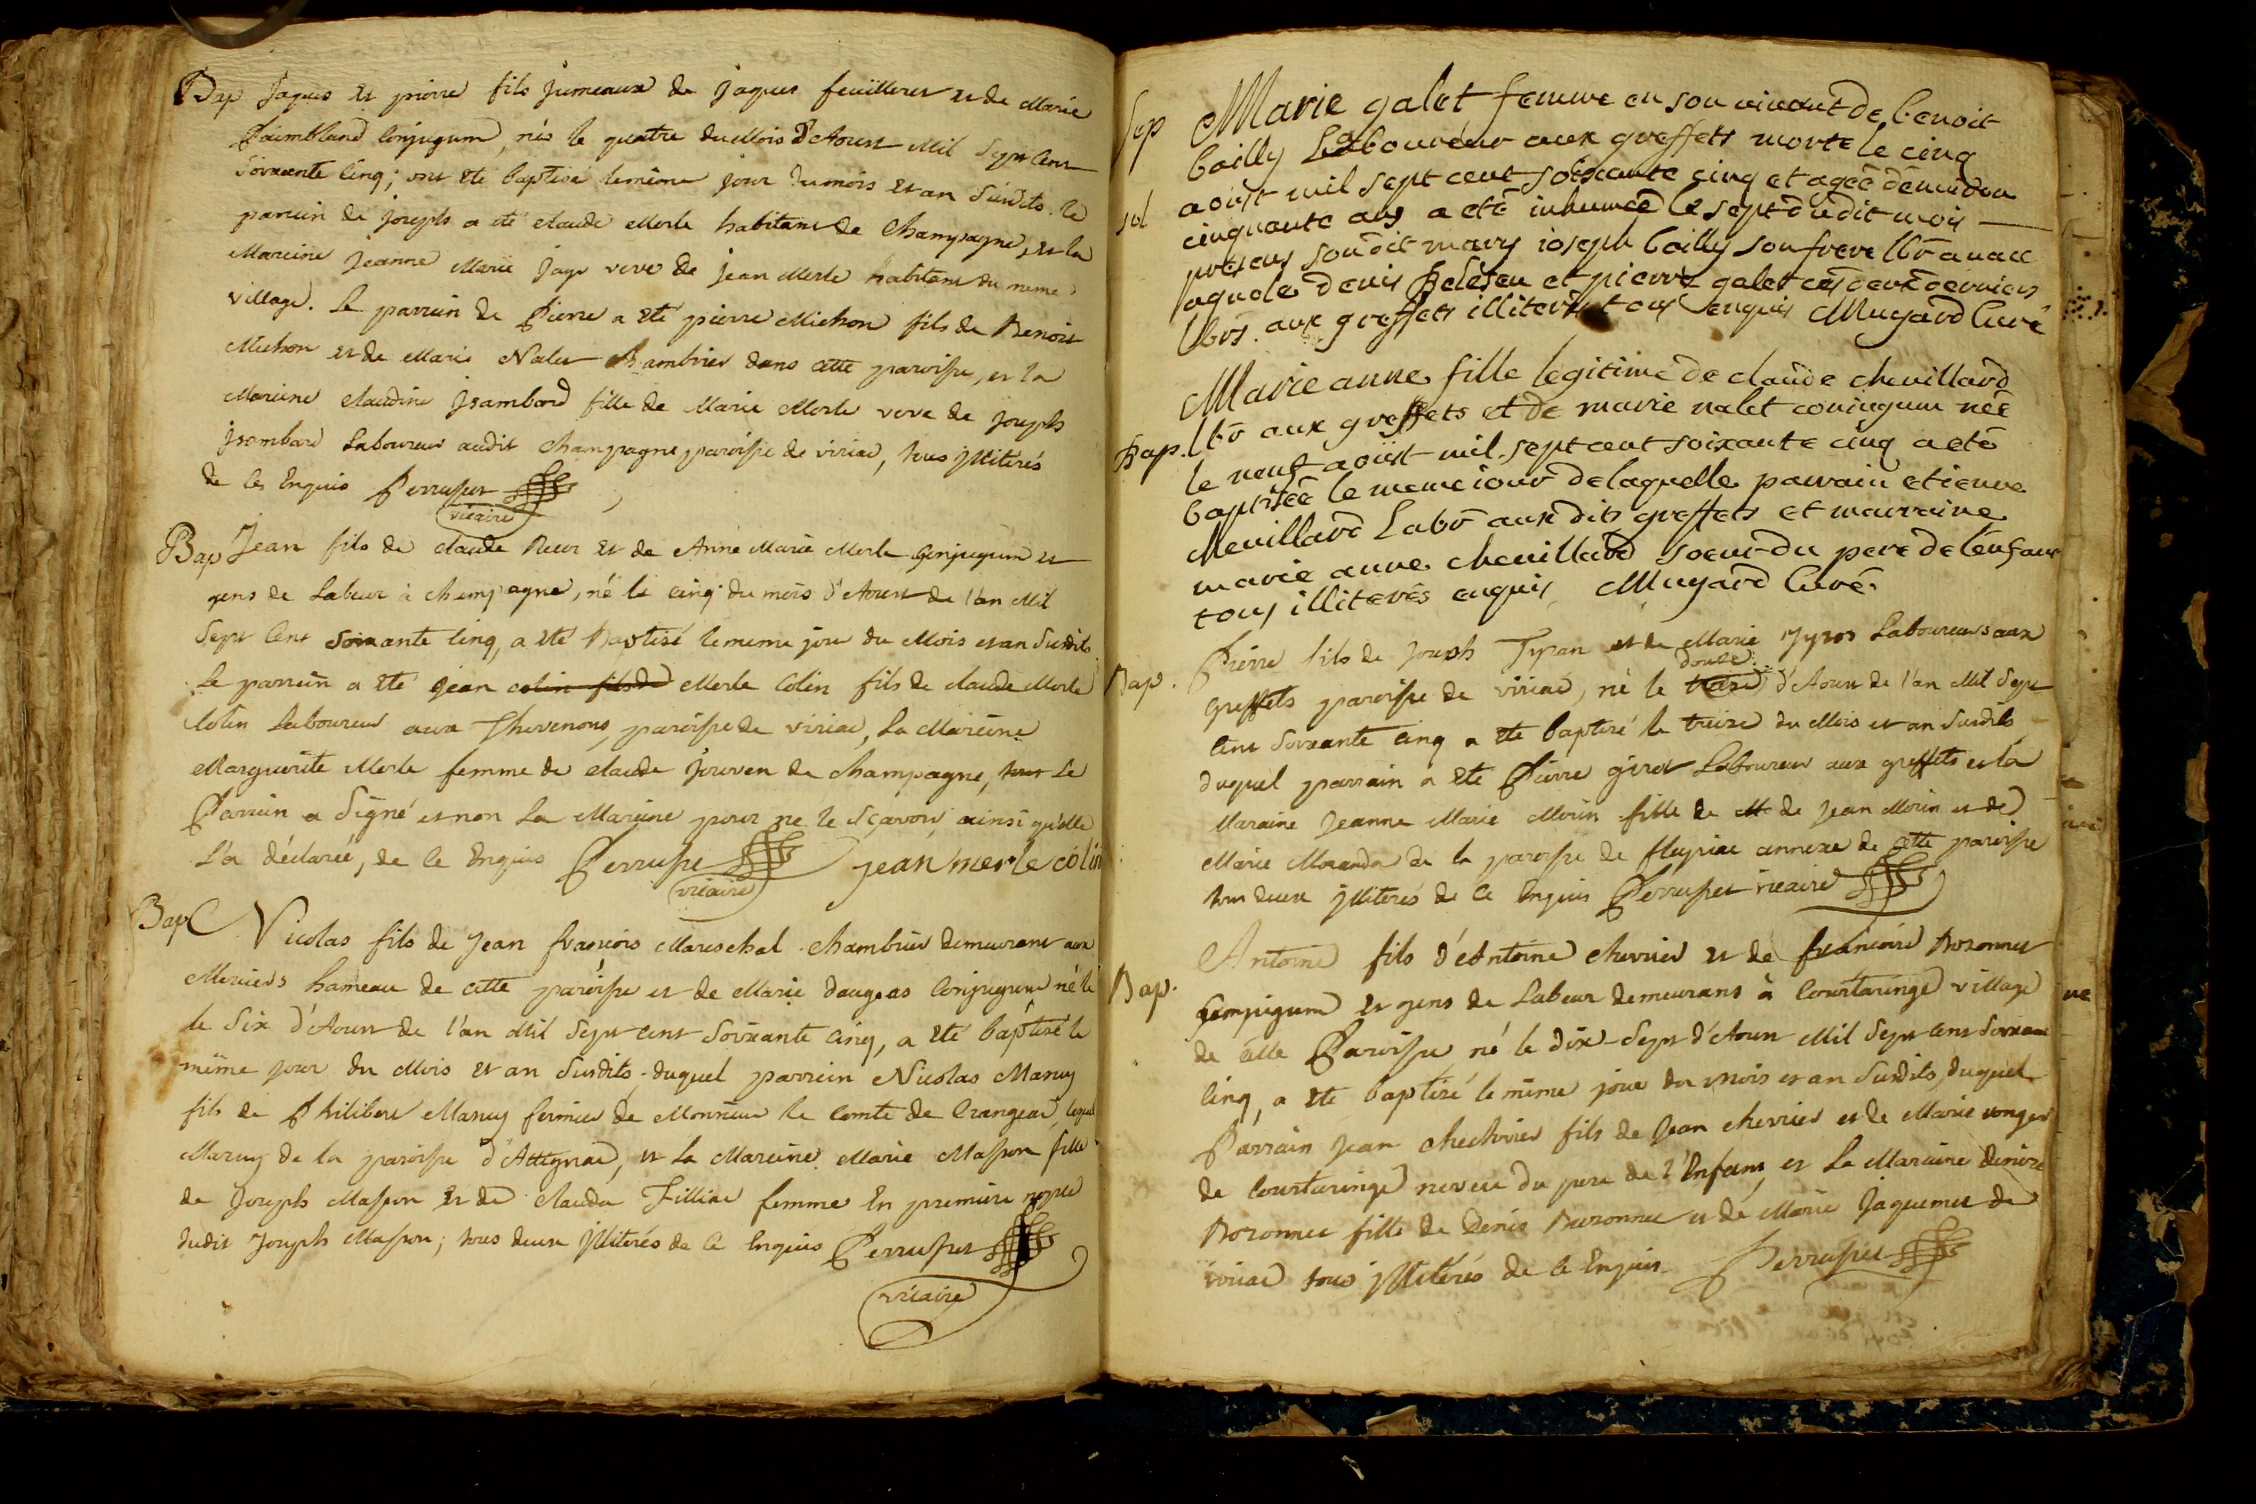 Bap Jaques et pierre fils jumeaux de jaques feüilleret et de Marie
Paimbland Conjugum, nés le quatre du Mois D'Aoust Mil Sept Cent
Soixante Cinq; ont été baptisé lemême jour dumois et an Susdits. le
parrein de joseph a été claude Merle habitant de Champagne, et la
Mareine jeanne Marie Jayr veve de jean Merle habitant du meme
village. Le parrein de Pierre a été pierre Michon fils de Benoit
Michon et de Marie Nalet chambrier dans cette paroisse, et la
Mareine claudine jsambard fille de Marie Merle veve de joseph
jsambard Laboureur audit Champagne paroisse de viriac, tous jlliterés
de ce Enquis Perruset
vicaire
Bap Jean fils de claude Neur et de Anne Marie Merle Conjugum et
gens de Labeur à champagne, né le cinq du mois d'Aoust de l'an Mil
Sept Cent Soixante Cinq, a été Baptisé le meme jour du Mois et an Susdits
Le parrein a été jean colin fils de Merle Colin fils de claude Merle
Colin Laboureur aux Thevenons, paroisse de viriac, La Mareine
Marguerite Merle femme de claude jouven de champagne, Le
Parrein a Signé et non La Mareine pour ne le Sçavoir ainsi qu'elle
L'a déclarée, de ce Enquis Perruset jean merle colin
vicaire
Bap Nicolas fils de Jean françois Mareschal chambrier demeurant aux
Meruers hameau de cette paroisse et de Marie daugeas Conjugum né le
le Six d'Aoust de l'an Mil Sept cent Soixante Cinq, a été baptisé le
même jour du Mois et an Susdits duquel parrein Nicolas Manuy
fils de Philibert Manuy fermier de Monsieur le Comte de Crangeac, lequel
Manuy de la paroisse d'Attignac, et La Mareine Marie Masson fille
de Joseph Masson et de Clauda Filliac femme En premiere nopce
dudit Joseph Masson; tous deux jlliterés de ce Enquis Perruset
vicaire
Sep Marie galet femme en son vivant de benoit
bailly Laboureur aux greffets morte le cinq
août mil sept cent soixante cinq et agée d'environ
cinquante ans a eté inhumée le sept dudit mois
presens son dit mary ioseph bailly son frere lbr a
denis et pierre galet ces deux derniers
lbrs. aux greffets illiterés tous enquis Mugard Curé
Marie anne fille legitime de claude chevillard
Bap. lbr aux greffets et de marie nalet coniugum née
le neuf aoüst mil sept cent soixante cinq a eté
baptisée le meme iour de laquelle parrain etienne
chevillard Labr aux dits greffets et marraine
marie anne chevillard soeur du pere de l'enfant
tous illiterés enquis Mugard Curé.
Bap. Pierre fils de Joseph Tyran et de Marie Laboureurs aux
douze
greffets paroisse de viriac, né le treize d'Aoust de l'an Mil Sept
Cent Soixante Cinq a été baptisé le treize du Mois et an Susdits
duquel parrain a été Pierre giret Laboureur aux greffets et la
Maraine Jeanne Marie Morin fille de M de Jean Morin et de
Marie Moranda de la paroisse de fleyriac annexe de cette paroisse
tous deux jlliterés de ce Enquis Perruset vicaire
Bap. Antoine fils d'Antoine chevrier et de françoise Bozonnet
Compigum et gens de Labeur demeurans à Courtaringe village
de cette Paroisse né le dix-Sept d'Aoust Mil Sept Cent Soixante
Cinq, a été baptisé le même jour du mois et an Susdits, duquel
Parrain Jean chechrier fils de Jean chevrier et de Marie
de Courtaringe neveu du pere de l'Enfant, et La Maraine Denise
Bozonnet fille de Denis Bozonnet et de Marie Jaquemet de
viriac tous jlliterés de ce Enquis Perruset